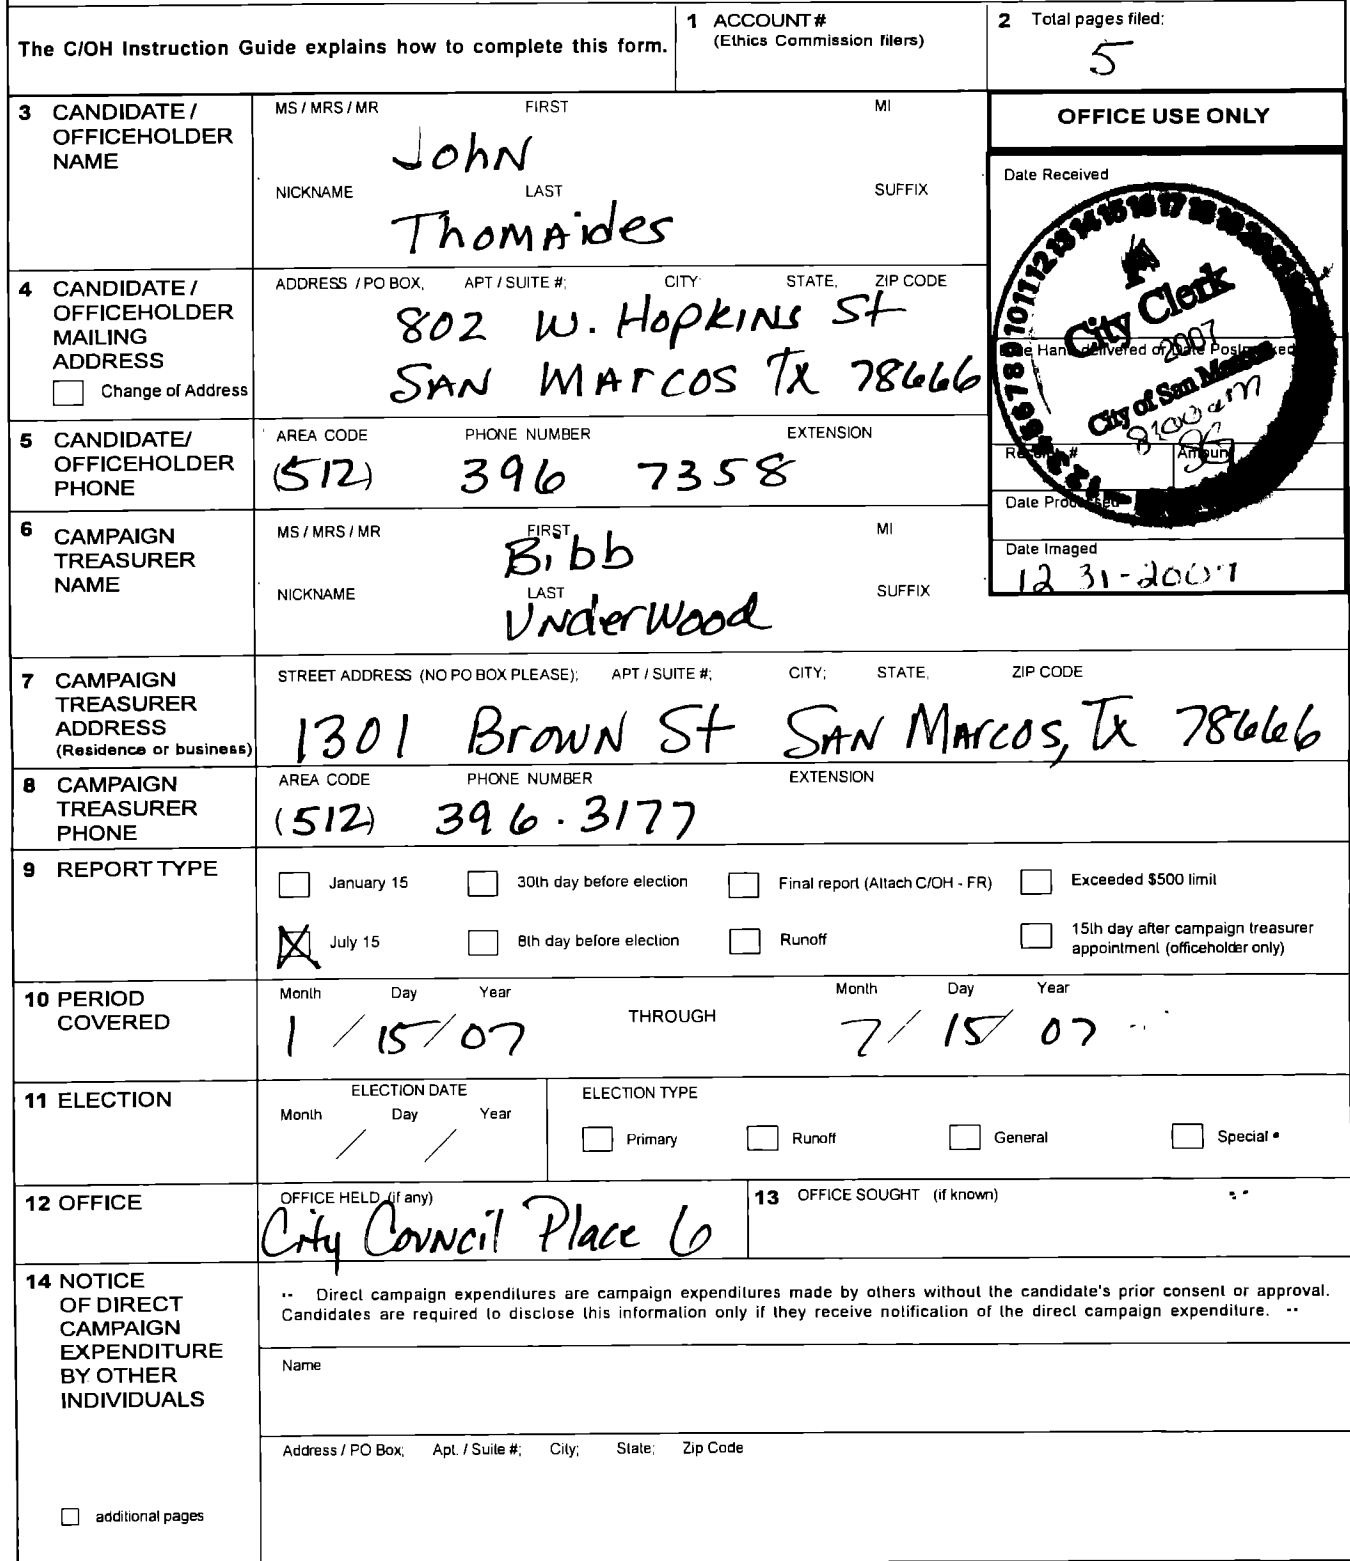 The C/OH Instruction Guide explains how to complete this form.
1 ACCOUNT #
(Ethics Commission filers)
2 Total pages filed:
5
3 CANDIDATE / OFFICEHOLDER NAME
MS / MRS / MR FIRST MI
John
NICKNAME LAST SUFFIX
Thomaides
OFFICE USE ONLY
Date Received
City Clerk
2007
City of San Marcos
8:00 am
Date Hand-delivered or Date Postmarked
Receipt # Amount
Date Processed
Date Imaged
12 31-2007
4 CANDIDATE / OFFICEHOLDER MAILING ADDRESS
Change of Address
ADDRESS / PO BOX, APT / SUITE #; CITY STATE, ZIP CODE
802 W. Hopkins St
San Marcos Tx 78666
5 CANDIDATE/ OFFICEHOLDER PHONE
AREA CODE PHONE NUMBER EXTENSION
(512) 396 7358
6 CAMPAIGN TREASURER NAME
MS / MRS / MR FIRST MI
Bibb
NICKNAME LAST SUFFIX
Underwood
7 CAMPAIGN TREASURER ADDRESS
(Residence or business)
STREET ADDRESS (NO PO BOX PLEASE); APT / SUITE #; CITY; STATE, ZIP CODE
1301 Brown St San Marcos, Tx 78666
8 CAMPAIGN TREASURER PHONE
AREA CODE PHONE NUMBER EXTENSION
(512) 396.3177
9 REPORT TYPE
January 15 30th day before election Final report (Attach C/OH - FR) Exceeded $500 limit
July 15 8th day before election Runoff 15th day after campaign treasurer appointment (officeholder only)
10 PERIOD COVERED
Month Day Year
1 / 15 / 07
THROUGH
Month Day Year
7 / 15 / 07
11 ELECTION
ELECTION DATE
Month Day Year
/ /
ELECTION TYPE
Primary Runoff General Special
12 OFFICE
OFFICE HELD (if any)
City Council Place 6
13 OFFICE SOUGHT (if known)
14 NOTICE OF DIRECT CAMPAIGN EXPENDITURE BY OTHER INDIVIDUALS
additional pages
·· Direct campaign expenditures are campaign expenditures made by others without the candidate's prior consent or approval.
Candidates are required to disclose this information only if they receive notification of the direct campaign expenditure. ··
Name
Address / PO Box; Apt. / Suite #; City; State; Zip Code